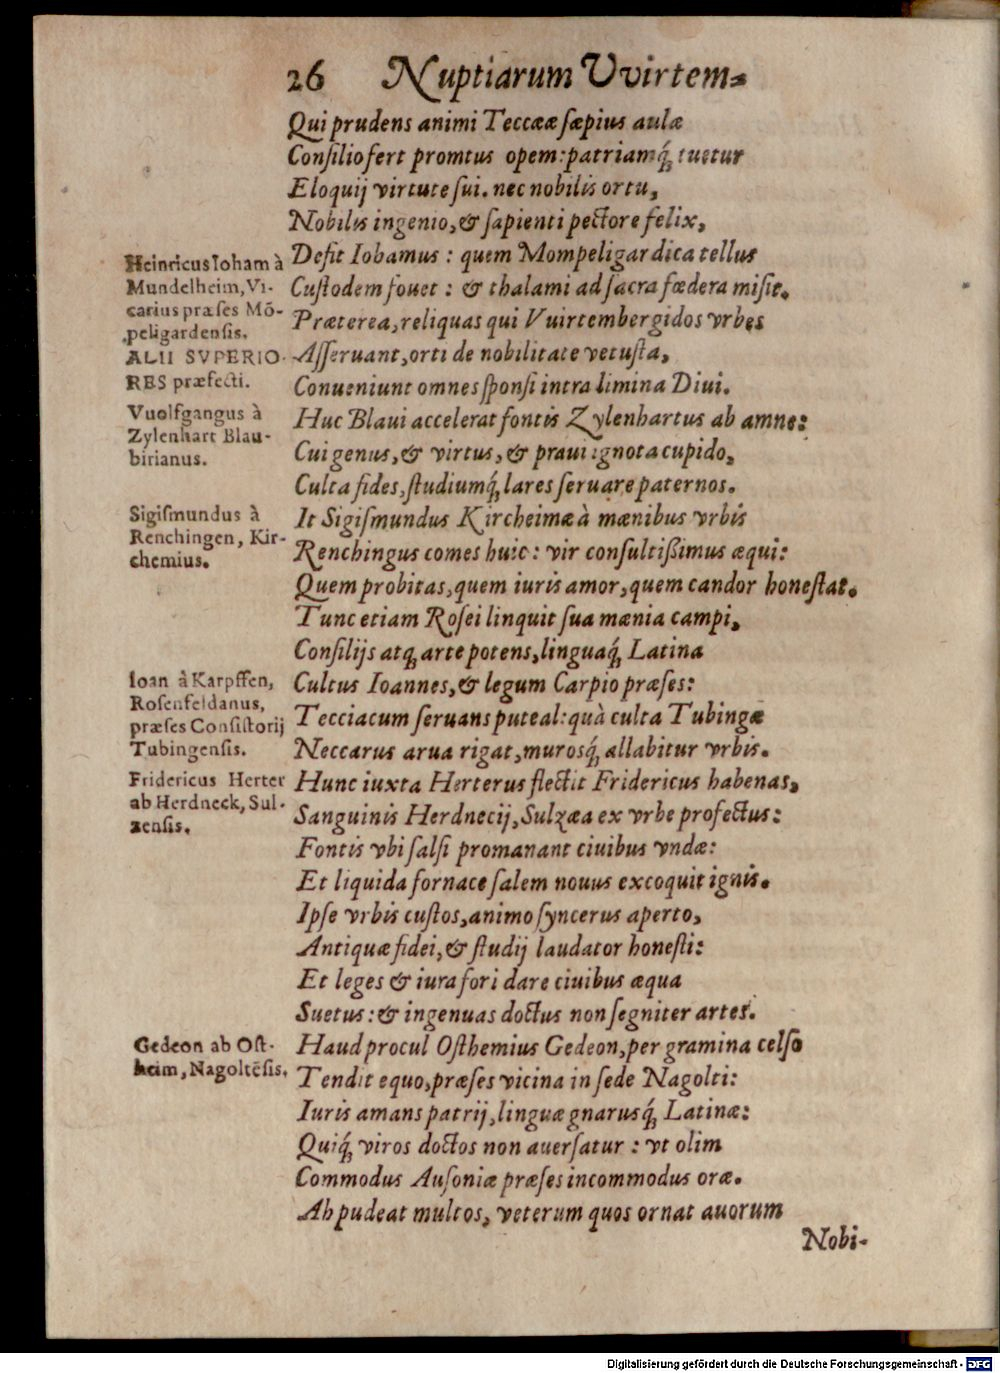 26 Nuptiarum Vvirtem=
Qui prudens animi Teccææ sæpius aulæ
Consilio fert promtus opem: patriamq́; tuetur
Eloquij virtute sui. nec nobilis ortu,
Nobilis ingenio, & sapienti pectore felix,
Heinricus Ioham à
Mundelheim, Vi-
carius præses Mõ-
peligardensis.
Defit Iohamus: quem Mompeligardica tellus
Custodem fouet: & thalami ad sacra fœdera misit.
Præterea, reliquas qui Vuirtembergidos vrbes
ALII SVPERIO-
RES præfecti.
Asseruant, orti de nobilitate vetusta,
Conueniunt omnes sponsi intra limina Diui.
Vuolfgangus à
Zylenhart Blau-
birianus.
Huc Blaui accelerat fontis Zylenhartus ab amne:
Cui genus, & virtus, & praui ignota cupido,
Culta fides, studiumq́; lares seruare paternos.
Sigismundus à
Renchingen, Kir-
chemius.
It Sigismundus Kircheimæ à mænibus vrbis
Renchingus comes huic: vir consultißimus æqui:
Quem probitas, quem iuris amor, quem candor honestat.
Tunc etiam Rosei linquit sua mænia campi,
Consilijs atq; arte potens, linguaq́; Latina
Ioan à Karpffen,
Rosenfeldanus,
præses Consistorij
Tubingensis.
Cultus Ioannes, & legum Carpio præses:
Tecciacum seruans puteal: quà culta Tubingæ
Neccarus arua rigat, murosq́; allabitur vrbis.
Fridericus Herter
ab Herdneck, Sul-
zensis.
Hunc iuxta Herterus flectit Fridericus habenas,
Sanguinis Herdnecij, Sulzæa ex vrbe profectus:
Fontis vbi salsi promanant ciuibus vndæ:
Et liquida fornace salem nouus excoquit ignis.
Ipse vrbis custos, animo syncerus aperto,
Antiquæ fidei, & studij laudator honesti:
Et leges & iura fori dare ciuibus æqua
Suetus: & ingenuas doctus non segniter artes.
Gedeon ab Ost-
heim, Nagoltẽsis.
Haud procul Osthemius Gedeon, per gramina celso
Tendit equo, præses vicina in sede Nagolti:
Iuris amans patrij, linguæ gnarusq́; Latinæ:
Quiq́; viros doctos non auersatur: vt olim
Commodus Ausoniæ præses incommodus oræ.
Ah pudeat multos, veterum quos ornat auorum
Nobi-
Digitalisierung gefördert durch die Deutsche Forschungsgemeinschaft - DFG